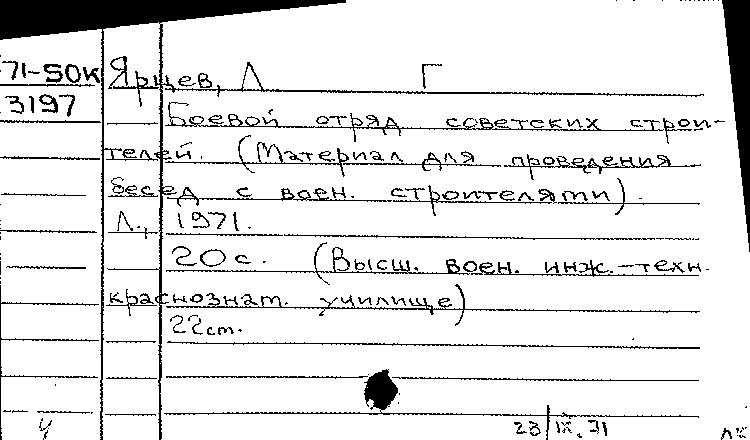 71-50К Ярцев, Л Г
3197
Боевой отряд советских строи-
телей. (Материал для проведения
бесед с воен. строителями).
Л., 1971.
20 с. (Высш. воен. инж.-техн.
краснознам. училище)
22 см.
23/IX.71